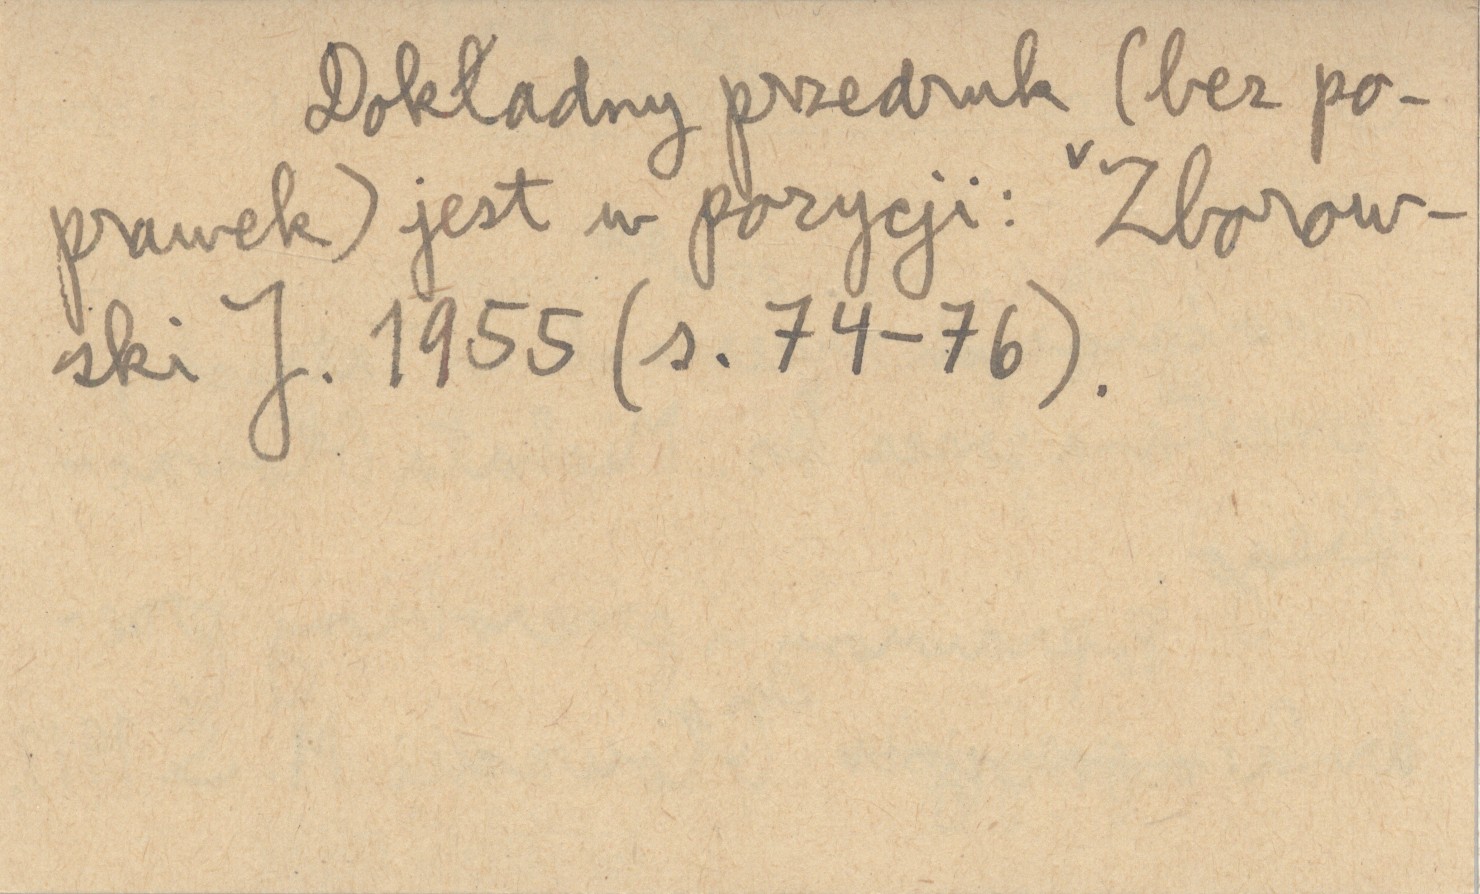 Dokładny przedruk (bez po-
prawek) jest w pozycji: ᵛZborow-
ski J. 1955 (s. 74-76).